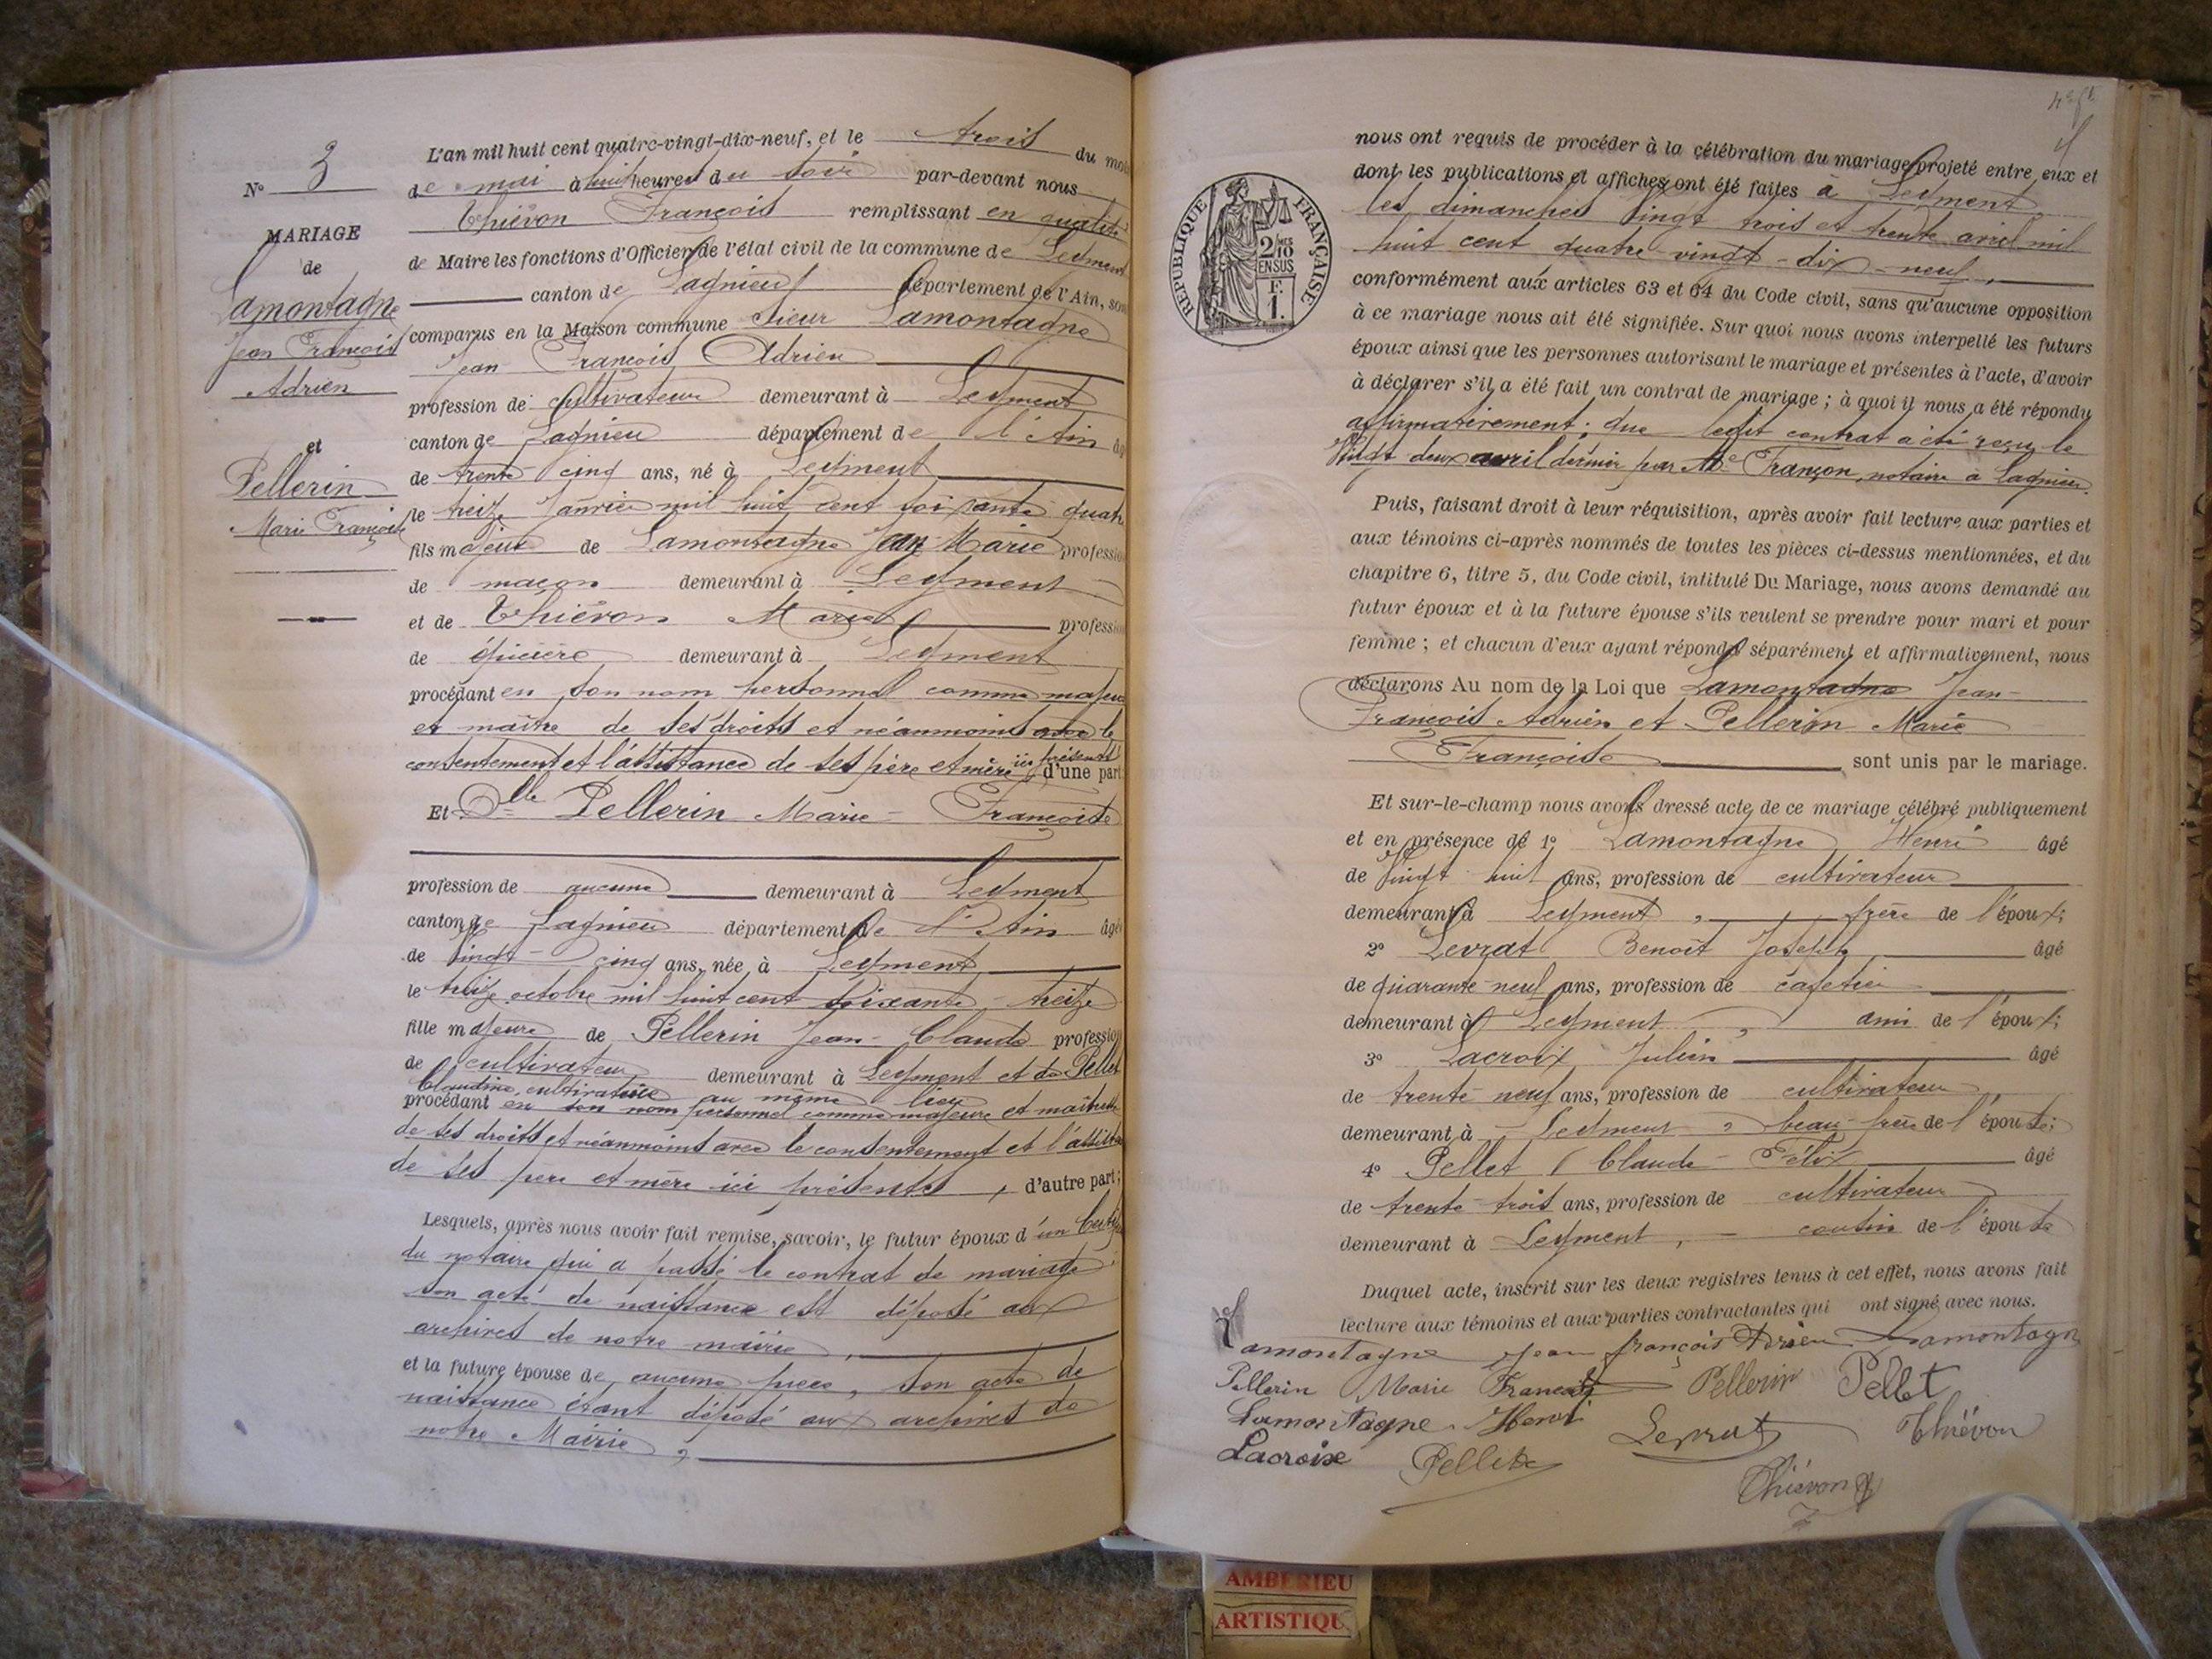 N° 3
MARIAGE
de
Lamontagne
Jean François
Adrien
et
Pellerin
Marie Françoise
L'an mil huit cent quatre-vingt-dix-neuf, et le trois du mois
de mai à huit heures du soir par-devant nous
Thiévon François remplissant en qualité
de Maire les fonctions d'Officier de l'état civil de la commune de Leyment
canton de Lagnieu département de l'Ain, sont
comparus en la Maison commune Sieur Lamontagne
Jean François Adrien
profession de cultivateur demeurant à Leyment
canton de Lagnieu département de l'Ain âgé
de trente cinq ans, né à Leyment
le treize Janvier mil huit cent soixante quatre
fils majeur de Lamontagne Jean Marie profession
de maçon demeurant à Leyment
et de Thiévon Marie profession
de épicière demeurant à Leyment
procédant en son nom personnel comme majeur
et maître de ses droits et néanmoins avec le
consentement et l'assistance de ses père et mère ici présents d'une part
Et Dlle Pellerin Marie-Françoise
profession de aucune demeurant à Leyment
canton de Lagnieu département de l'Ain âgée
de vingt-cinq ans, née à Leyment
le treize octobre mil huit cent soixante-treize
fille majeure de Pellerin Jean-Claude profession
de cultivateur demeurant à Leyment et de Pellet
Claudine, cultivatrice au même lieu
procédant en son nom personnel comme majeure et maîtresse
de ses droits et néanmoins avec le consentement et l'assistance
de ses père et mère ici présents, d'autre part;
Lesquels, après nous avoir fait remise, savoir, le futur époux d'un
du notaire qui a passé le contrat de mariage
son acte de naissance est déposé aux
archives de notre mairie,
et la future épouse de aucune pièce, son acte de
naissance étant déposé aux archives de
notre Mairie,
nous ont requis de procéder à la célébration du mariage projeté entre eux et
dont les publications et affiches ont été faites à Leyment
les dimanches vingt trois et trente avril mil
huit cent quatre-vingt-dix-neuf,
conformément aux articles 63 et 64 du Code civil, sans qu'aucune opposition
à ce mariage nous ait été signifiée. Sur quoi nous avons interpellé les futurs
époux ainsi que les personnes autorisant le mariage et présentes à l'acte, d'avoir
à déclarer s'il a été fait un contrat de mariage; à quoi il nous a été répondu
affirmativement; que ledit contrat a été reçu le
vingt deux avril dernier par Me Françon, notaire à Lagnieu.
Puis, faisant droit à leur réquisition, après avoir fait lecture aux parties et
aux témoins ci-après nommés de toutes les pièces ci-dessus mentionnées, et du
chapitre 6, titre 5, du Code civil, intitulé Du Mariage, nous avons demandé au
futur époux et à la future épouse s'ils veulent se prendre pour mari et pour
femme; et chacun d'eux ayant répondu séparément et affirmativement, nous
déclarons Au nom de la Loi que Lamontagne Jean-
François Adrien et Pellerin Marie
Françoise sont unis par le mariage.
Et sur-le-champ nous avons dressé acte de ce mariage célébré publiquement
et en présence de 1° Lamontagne Henri âgé
de vingt huit ans, profession de cultivateur
demeurant à Leyment, frère de l'époux;
2° Levrat Benoît Joseph âgé
de quarante-neuf ans, profession de cafetier
demeurant à Leyment, ami de l'époux;
3° Lacroix Julien âgé
de trente-neuf ans, profession de cultivateur
demeurant à Leyment, beau-frère de l'épouse;
4° Pellet Claude-Félix âgé
de trente-trois ans, profession de cultivateur
demeurant à Leyment, cousin de l'épouse
Duquel acte, inscrit sur les deux registres tenus à cet effet, nous avons fait
lecture aux témoins et aux parties contractantes qui ont signé avec nous.
Lamontagne Jean françois Adrien Lamontagne
Pellerin Marie Françoise Pellerin Pellet
Lamontagne Henri Levrat Thiévon
Lacroix Pellet
Thiévon
RÉPUBLIQUE FRANÇAISE
2/MES
10
EN SUS
F.
1.
AMBERIEU
ARTISTIQU